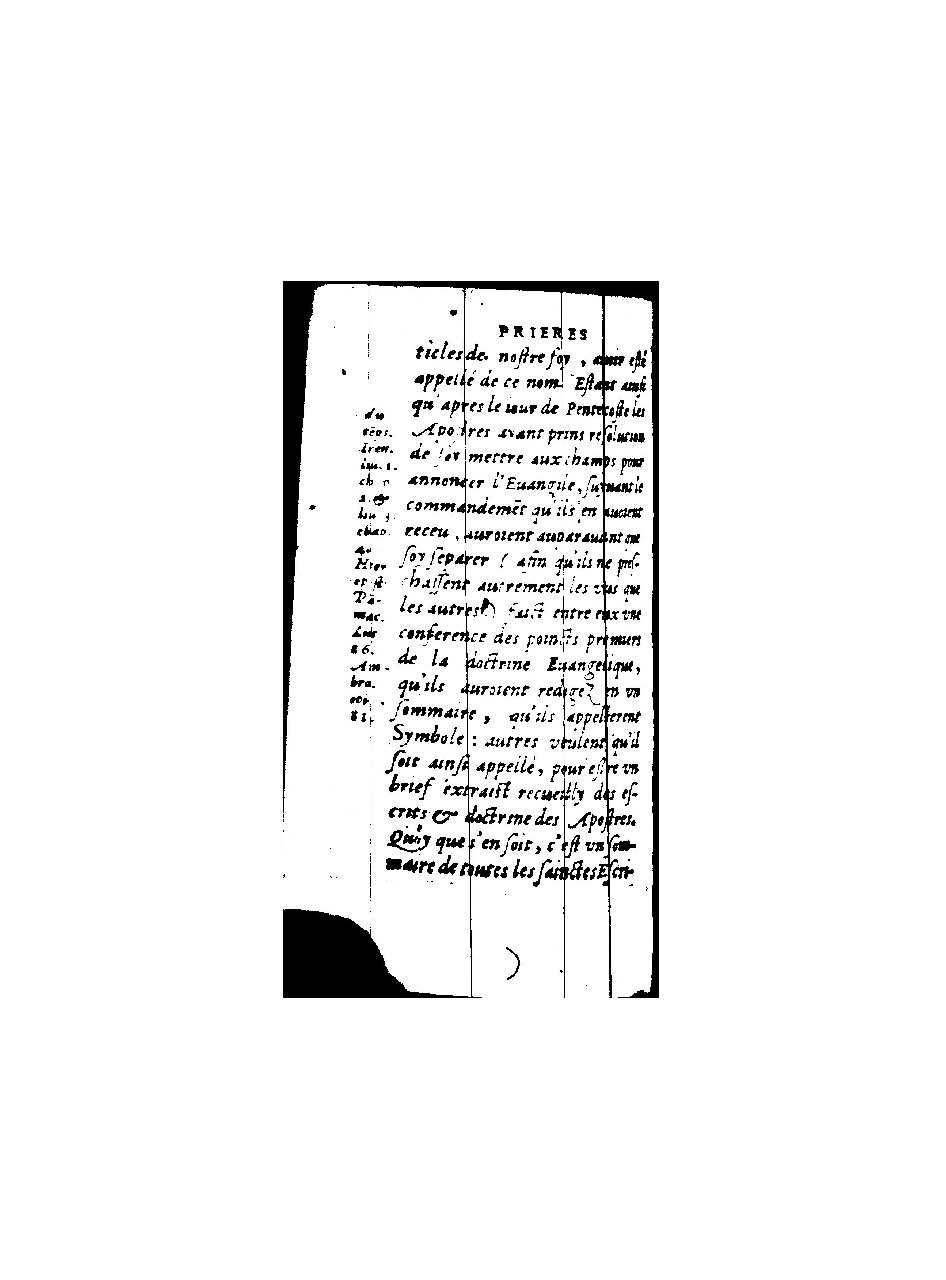 PRIERES
ticles de nostre foy, auoir esté
appellé de ce nom. Estant ainsi
qu'apres le iour de Pentecoste les
Apostres ayant prins resolution
de soy mettre aux champs pour
annoncer l'Euangile, suyuant le
commandemēt qu'ils en auoient
receu, auroient auparauant que
soy separer (afin qu'ils ne pres-
chassent autrement les vns que
les autres) faict entre eux vne
conference des poincts premiers
de la doctrine Euangelique,
qu'ils auroient redigez en vn
sommaire, qu'ils appellerent
Symbole : autres veulent qu'il
soit ainsi appellé, pour estre vn
brief extraict recueilly des es-
crits & doctrine des Apostres.
Quoy que s'en soit, c'est vn som-
maire de toutes les sainctes Escri-
du
tēps.
Iren.
liu. 1.
ch
2. &
liu 3.
chap.
4.
Hier
epist.
Pā-
mac.
Am-
bro.
81.